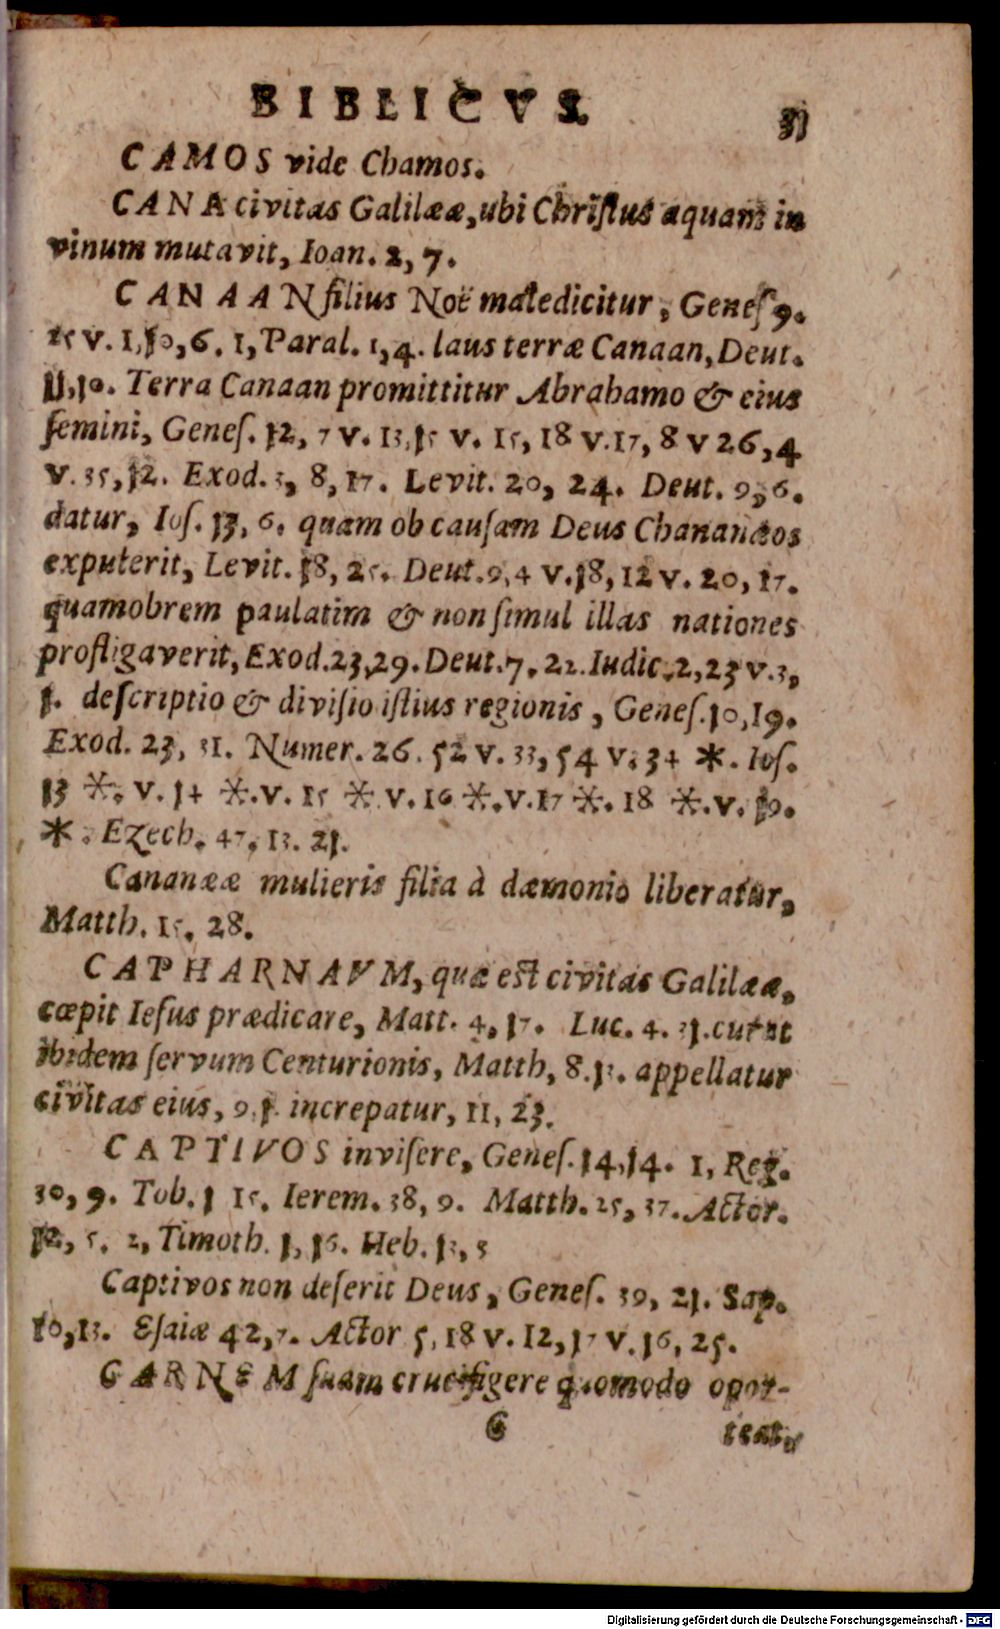 BIBLICVS. 31
CAMOS vide Chamos.
CANA civitas Galilææ, ubi Chriſtus aquam in
vinum mutavit, Ioan. 2, 7.
CANAAN filius Noë maledicitur, Geneſ 9.
25 v. 1, 10, 6. 1, Paral. 1, 4. laus terræ Canaan, Deut.
11, 10. Terra Canaan promittitur Abrahamo & eius
ſemini, Geneſ. 12, 7 v. 13, 15 v. 15, 18 v. 17, 8 v 26, 4
v. 35, 12. Exod. 3, 8, 17. Levit. 20, 24. Deut. 9, 6.
datur, Ioſ. 13, 6. quam ob cauſam Deus Chananæos
exputerit, Levit. 18, 25. Deut. 9, 4 v. 18, 12 v. 20, 17.
quamobrem paulatim & non ſimul illas nationes
profligaverit, Exod. 23, 29. Deut. 7. 22. Iudic. 2, 23 v. 3,
1. deſcriptio & diviſio iſtius regionis, Geneſ. 10, 19.
Exod. 23, 31. Numer. 26. 52 v. 33, 54 v. 34 *. Ioſ.
13 *. v. 14 *. v. 15 * v. 16 *. v. 17 *. 18 *. v. 19.
*. Ezech. 47. 13. 21.
Cananææ mulieris filia à dæmonio liberatur,
Matth. 15. 28.
CAPHARNAVM, quæ est civitas Galilææ,
cœpit Ieſus prædicare, Matt. 4, 17. Luc. 4. 31. curat
ibidem ſervum Centurionis, Matth, 8. 13. appellatur
civitas eius, 9. 1. increpatur, 11, 23.
CAPTIVOS inviſere, Geneſ. 14, 14. 1, Reg.
30, 9. Tob. 1 15. Ierem. 38, 9. Matth. 25, 37. Actor.
12, 5. 2, Timoth. 1, 16. Heb. 13, 3
Captivos non deſerit Deus, Geneſ. 39, 21. Sap.
10, 13. Eſaiæ 42, 7. Actor 5, 18 v. 12, 17 v. 16, 25.
CARNEM ſuam crucifigere quomodo opor-
C teat,
Digitalisierung gefördert durch die Deutsche Forschungsgemeinschaft - DFG